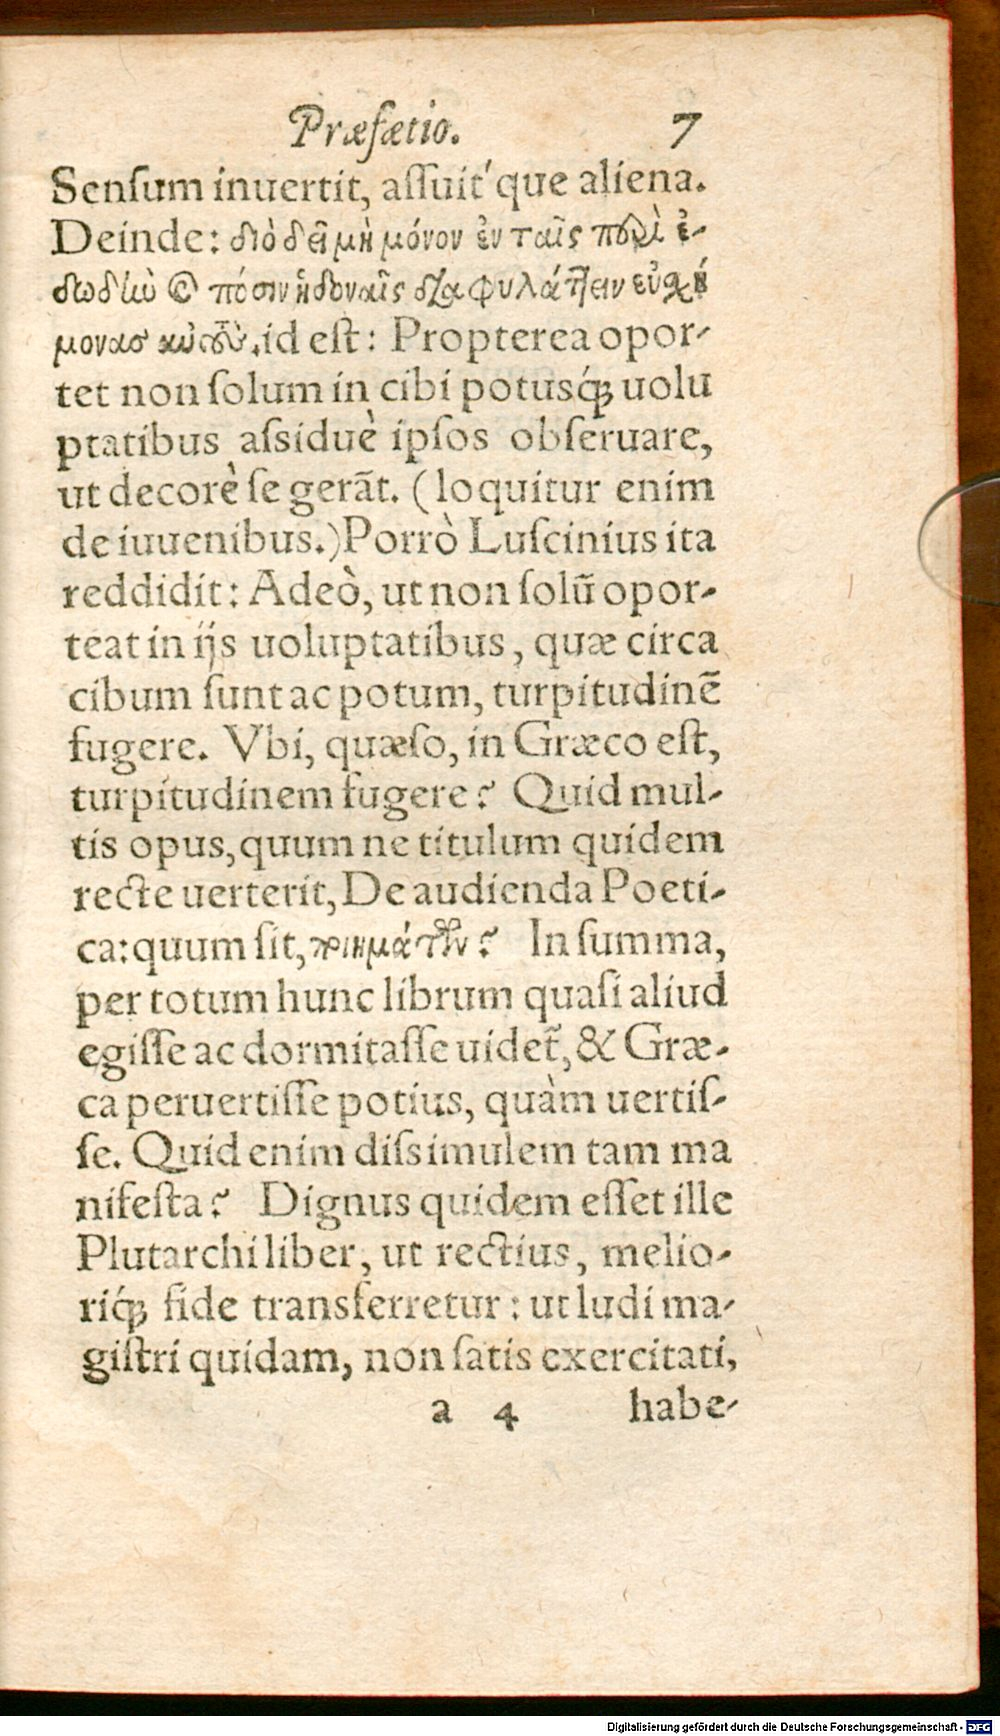 Præfætio. 7
Senſum inuertit, aſſuit́ que aliena.
Deinde: διὸ δεῖ μὴ μόνον ἐν ταῖς περὶ ἐ-
δωδὴν καὶ πόσιν ἡδοναῖς διαφυλάττειν εὐσχή
μονας αὐτοὺς. id eſt: Propterea opor-
tet non ſolum in cibi potusq́ꝫ uolu
ptatibus aſsiduè ipſos obſeruare,
ut decorè ſe gerãt. (loquitur enim
de iuuenibus.) Porrò Luſcinius ita
reddidit: Adeò, ut non ſolũ opor-
teat in ijs uoluptatibus, quæ circa
cibum ſunt ac potum, turpitudinẽ
fugere. Vbi, quæſo, in Græco eſt,
turpitudinem fugere? Quid mul-
tis opus, quum ne titulum quidem
recte uerterit, De audienda Poeti-
ca: quum ſit, ποιημάτων? In ſumma,
per totum hunc librum quaſi aliud
egiſſe ac dormitaſſe uidet̃, & Græ-
ca peruertiſſe potius, quàm uertiſ-
ſe. Quid enim diſsimulem tam ma
nifeſta? Dignus quidem eſſet ille
Plutarchi liber, ut rectius, melio-
riq́ꝫ fide transferretur: ut ludi ma-
giſtri quidam, non ſatis exercitati,
a 4 habe-
Digitalisierung gefördert durch die Deutsche Forschungsgemeinschaft - DFG